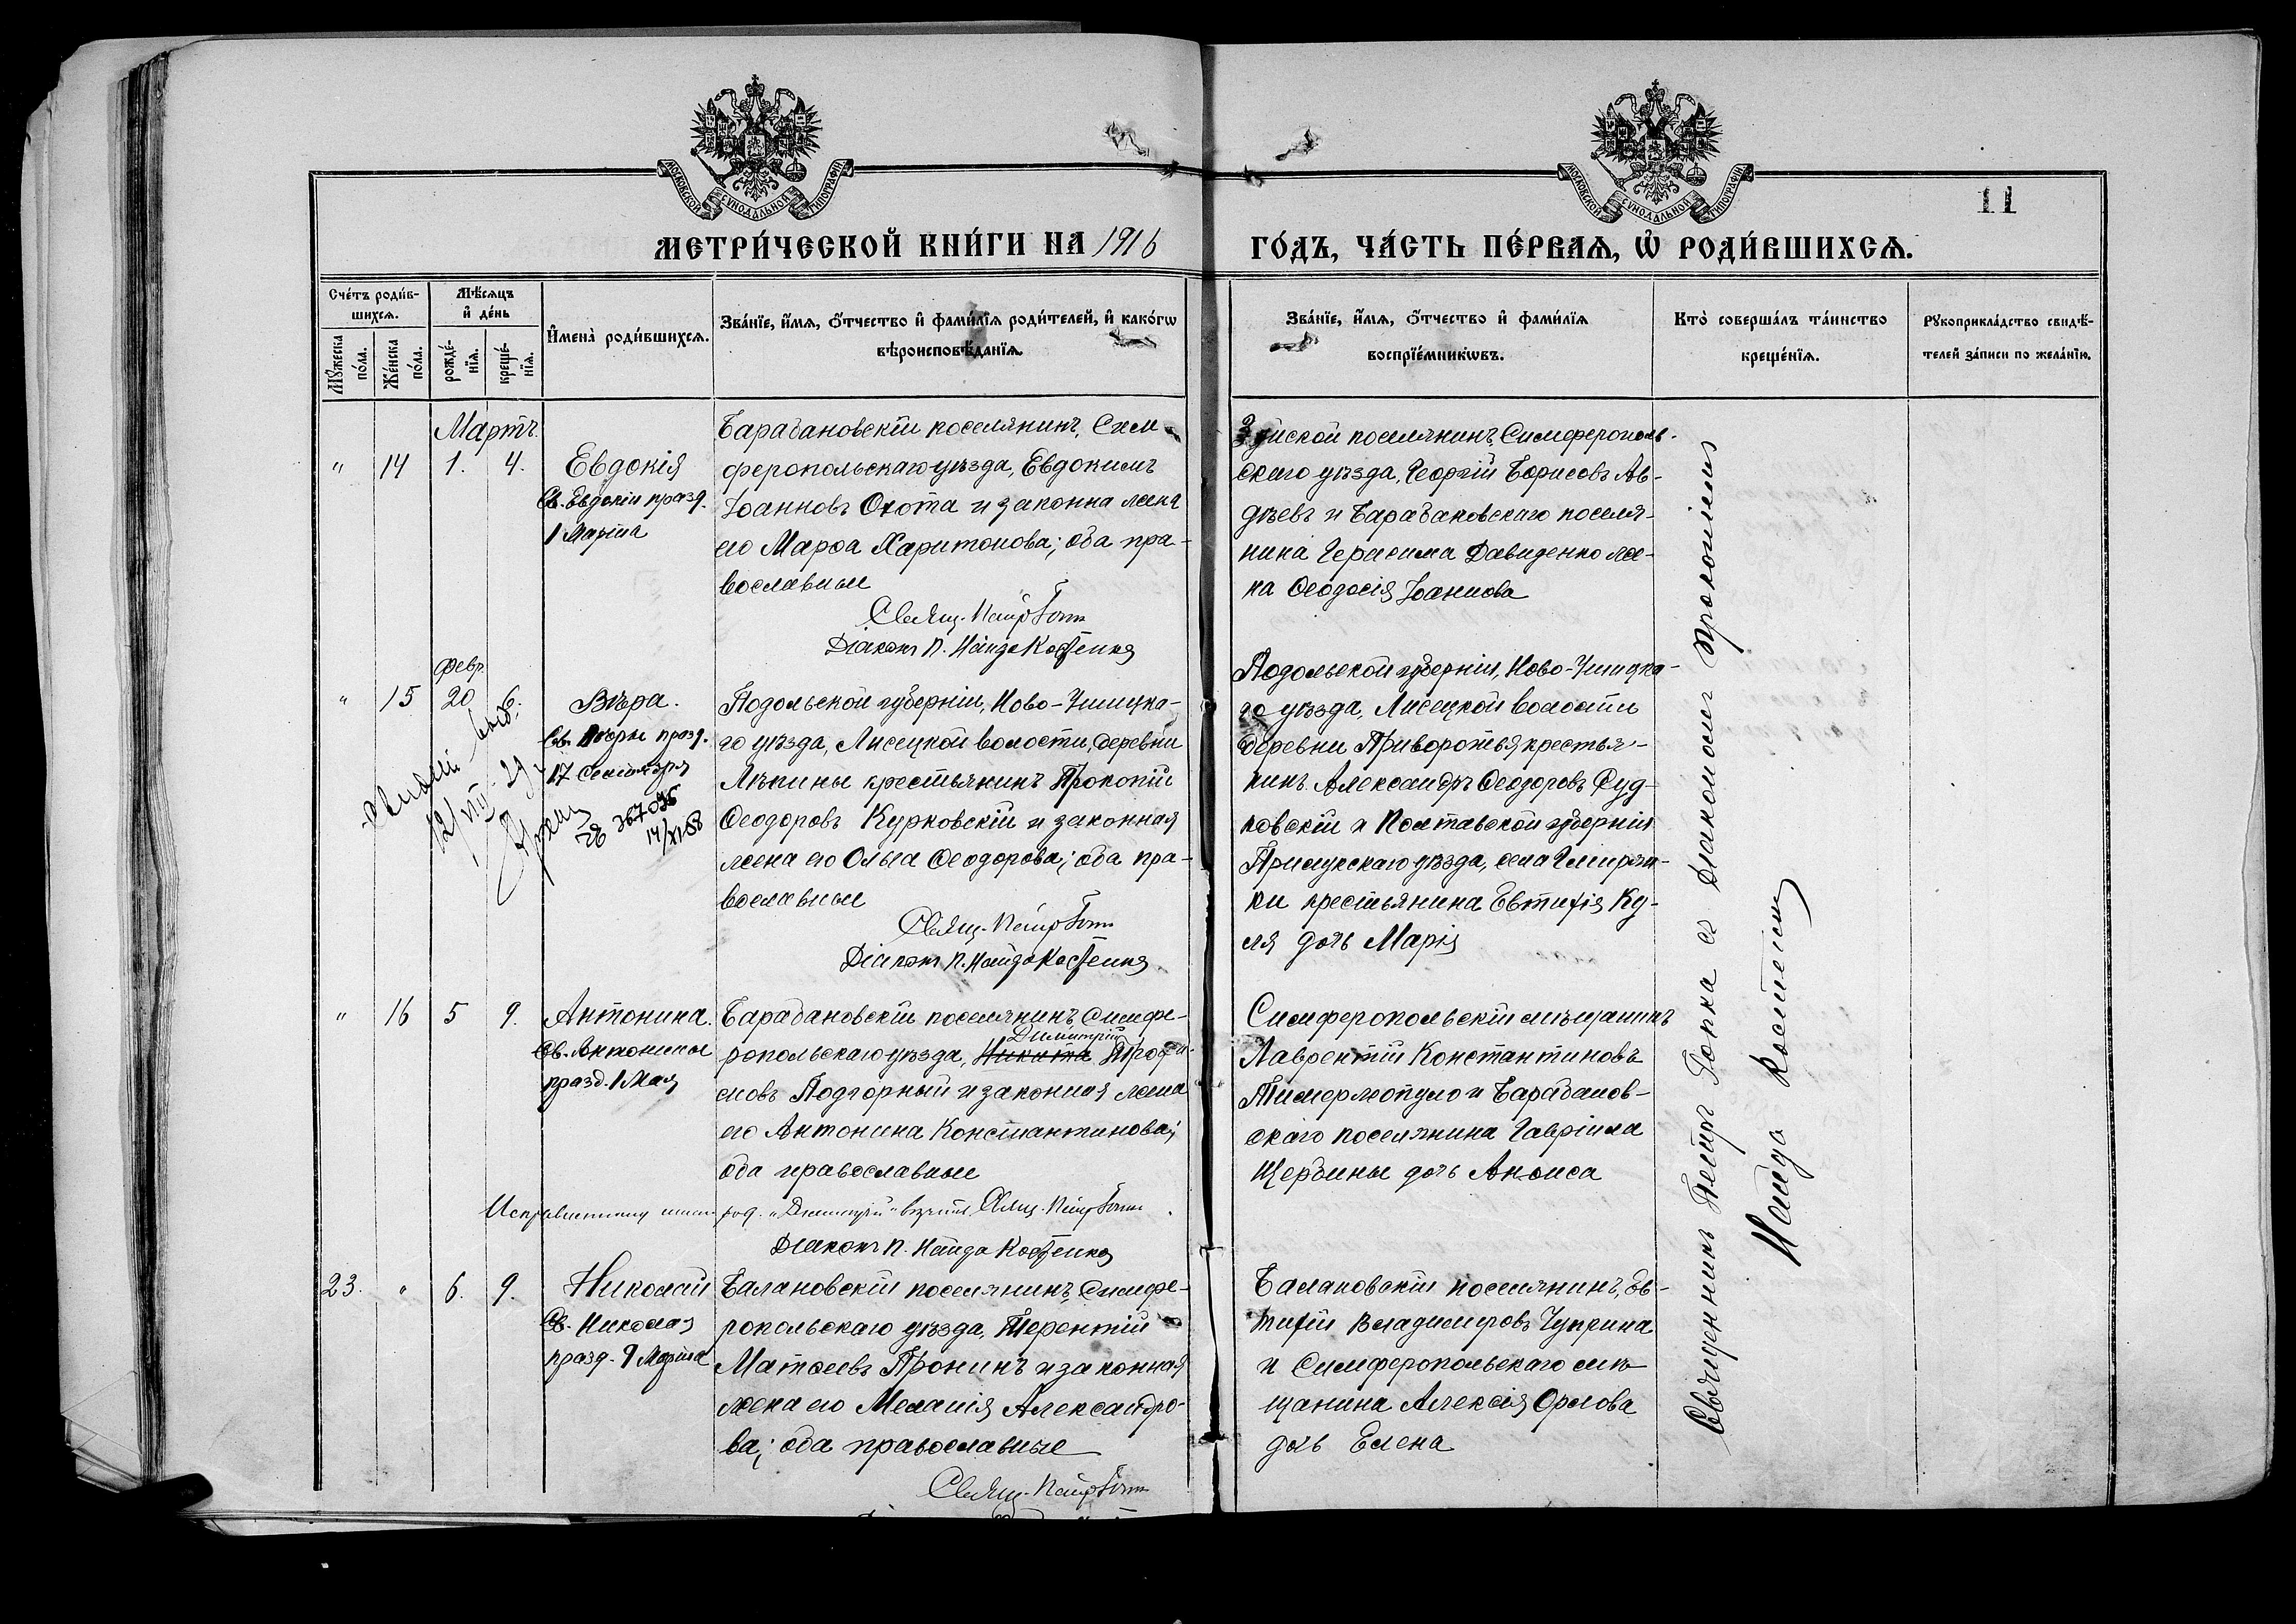 МОСКОВСКОЙ СУНОДАЛЬНОЙ ТИПОГРАФІИ
МОСКОВСКОЙ СУНОДАЛЬНОЙ ТИПОГРАФІИ
11
МЕТРИ́ЧЕСКОЙ КНИ́ГИ НА 1916
ГО́ДЪ, ЧА́СТЬ ПЕ́РВАѦ, Ѡ҆ РОДИ́ВШИХСѦ.
Сче́тъ роди́в-
шихсѧ.
Мꙋжеска по́ла.
Же́нска по́ла.
Мѣ́сѧцъ
и҆ де́нь
рожде́-
нїѧ.
креще́-
нїѧ.
И҆мена̀ роди́вшихсѧ.
Зва́нїе, и҆́мѧ, о҆́тчество и҆ фами́лїѧ роди́телей, и҆ како́гѡ
вѣроисповѣ́данїѧ.
Зва́нїе, и҆́мѧ, о҆́тчество и҆ фами́лїѧ
воспрїе́мникѡвъ.
Кто̀ соверша́лъ та́инство
креще́нїѧ.
Рꙋкоприкла́дство свидѣ́-
телей за́писи по жела́нїю.
Мартъ.
" 14 1. 4.
Евдокія
Св. Евдокіи празд.
1 Марта
Барабановскій поселянинъ, Сим-
феропольскаго уѣзда, Евдокимъ
Іоанновъ Охота и законна жена
его Марѳа Харитонова; оба пра-
вославные
Свящ. Петръ Гопка
Діаконъ П. Найда Костенко
Зуйской поселянинъ, Симферополь-
скаго уѣзда, Георгій Борисовъ Ав-
дѣевъ и Барабановскаго поселя-
нина Герасима Давиденко же-
на Ѳеодосія Іоаннова
Февр.
" 15 20 6.
Вѣра.
Св. Вѣры празд.
17 Сентября
12/VIII 29
367096
14/XI 58
Подольской губерніи, Ново-Ушицка-
го уѣзда, Лисецкой волости, деревни
Лѣпины крестьянинъ Прокопій
Ѳеодоровъ Курковскій и законная
жена его Ольга Ѳеодорова; оба пра-
вославные
Свящ. Петръ Гопка
Діаконъ П. Найда Костенко
Подольской губерніи, Ново-Ушицка-
го уѣзда, Лисецкой волости
деревни Приворотья крестья-
нинъ Александръ Ѳеодоровъ Руд-
ковскій и Полтавской губерніи
Прилукскаго уѣзда, села
ки крестьянина Евтихія Ку-
ля дочь Марія
" 16 5 9.
Антонина.
Св. Антонины
празд. 1 Мая
Барабановскій поселянинъ, Симфе-
Димитрій
ропольскаго уѣзда, Никита Трофи-
мовъ Подгорный и законная жена
его Антонина Константинова;
оба православные
род. "Димитрій" вѣрить. Свящ. Петръ Гопка
Діаконъ П. Найда Костенко
Симферопольскій мѣщанинъ
Лаврентій Константиновъ
и Барабанов-
скаго поселянина Гавріила
Щербины дочь Анфиса
23. " 6. 9.
Николай
Св. Николая
празд. 9 Марта
Балановскій поселянинъ, Симфе-
ропольскаго уѣзда, Терентій
Матѳеевъ Пронинъ и законная
жена его Меланія Александро-
ва; оба православные
Свящ. Петръ Гопка
Балановскій поселянинъ, Ев-
тихій Владимировъ Чуприна
и Симферопольскаго мѣ-
щанина Алексія Орлова
дочь Елена
Священникъ Петръ Гопка съ Діакономъ Прокопіемъ
Найда Костенко